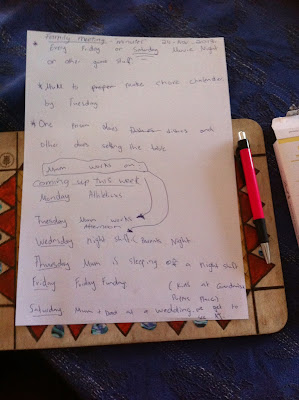 Family Meeting Minutes
Every Friday or Saturday Movie Night
or other good stuff.
* Mum to prepare chores
by Tuesday
* One does dishes and
other does setting the table
Mum works on
coming up this week
Monday Athletics
Tuesday Mum works
Afternoon
Wednesday night shift / Parents Night
Thursday Mum is sleeping off a night shift
Friday Friday Funday
Saturday Mum + Dad at a wedding, we get to